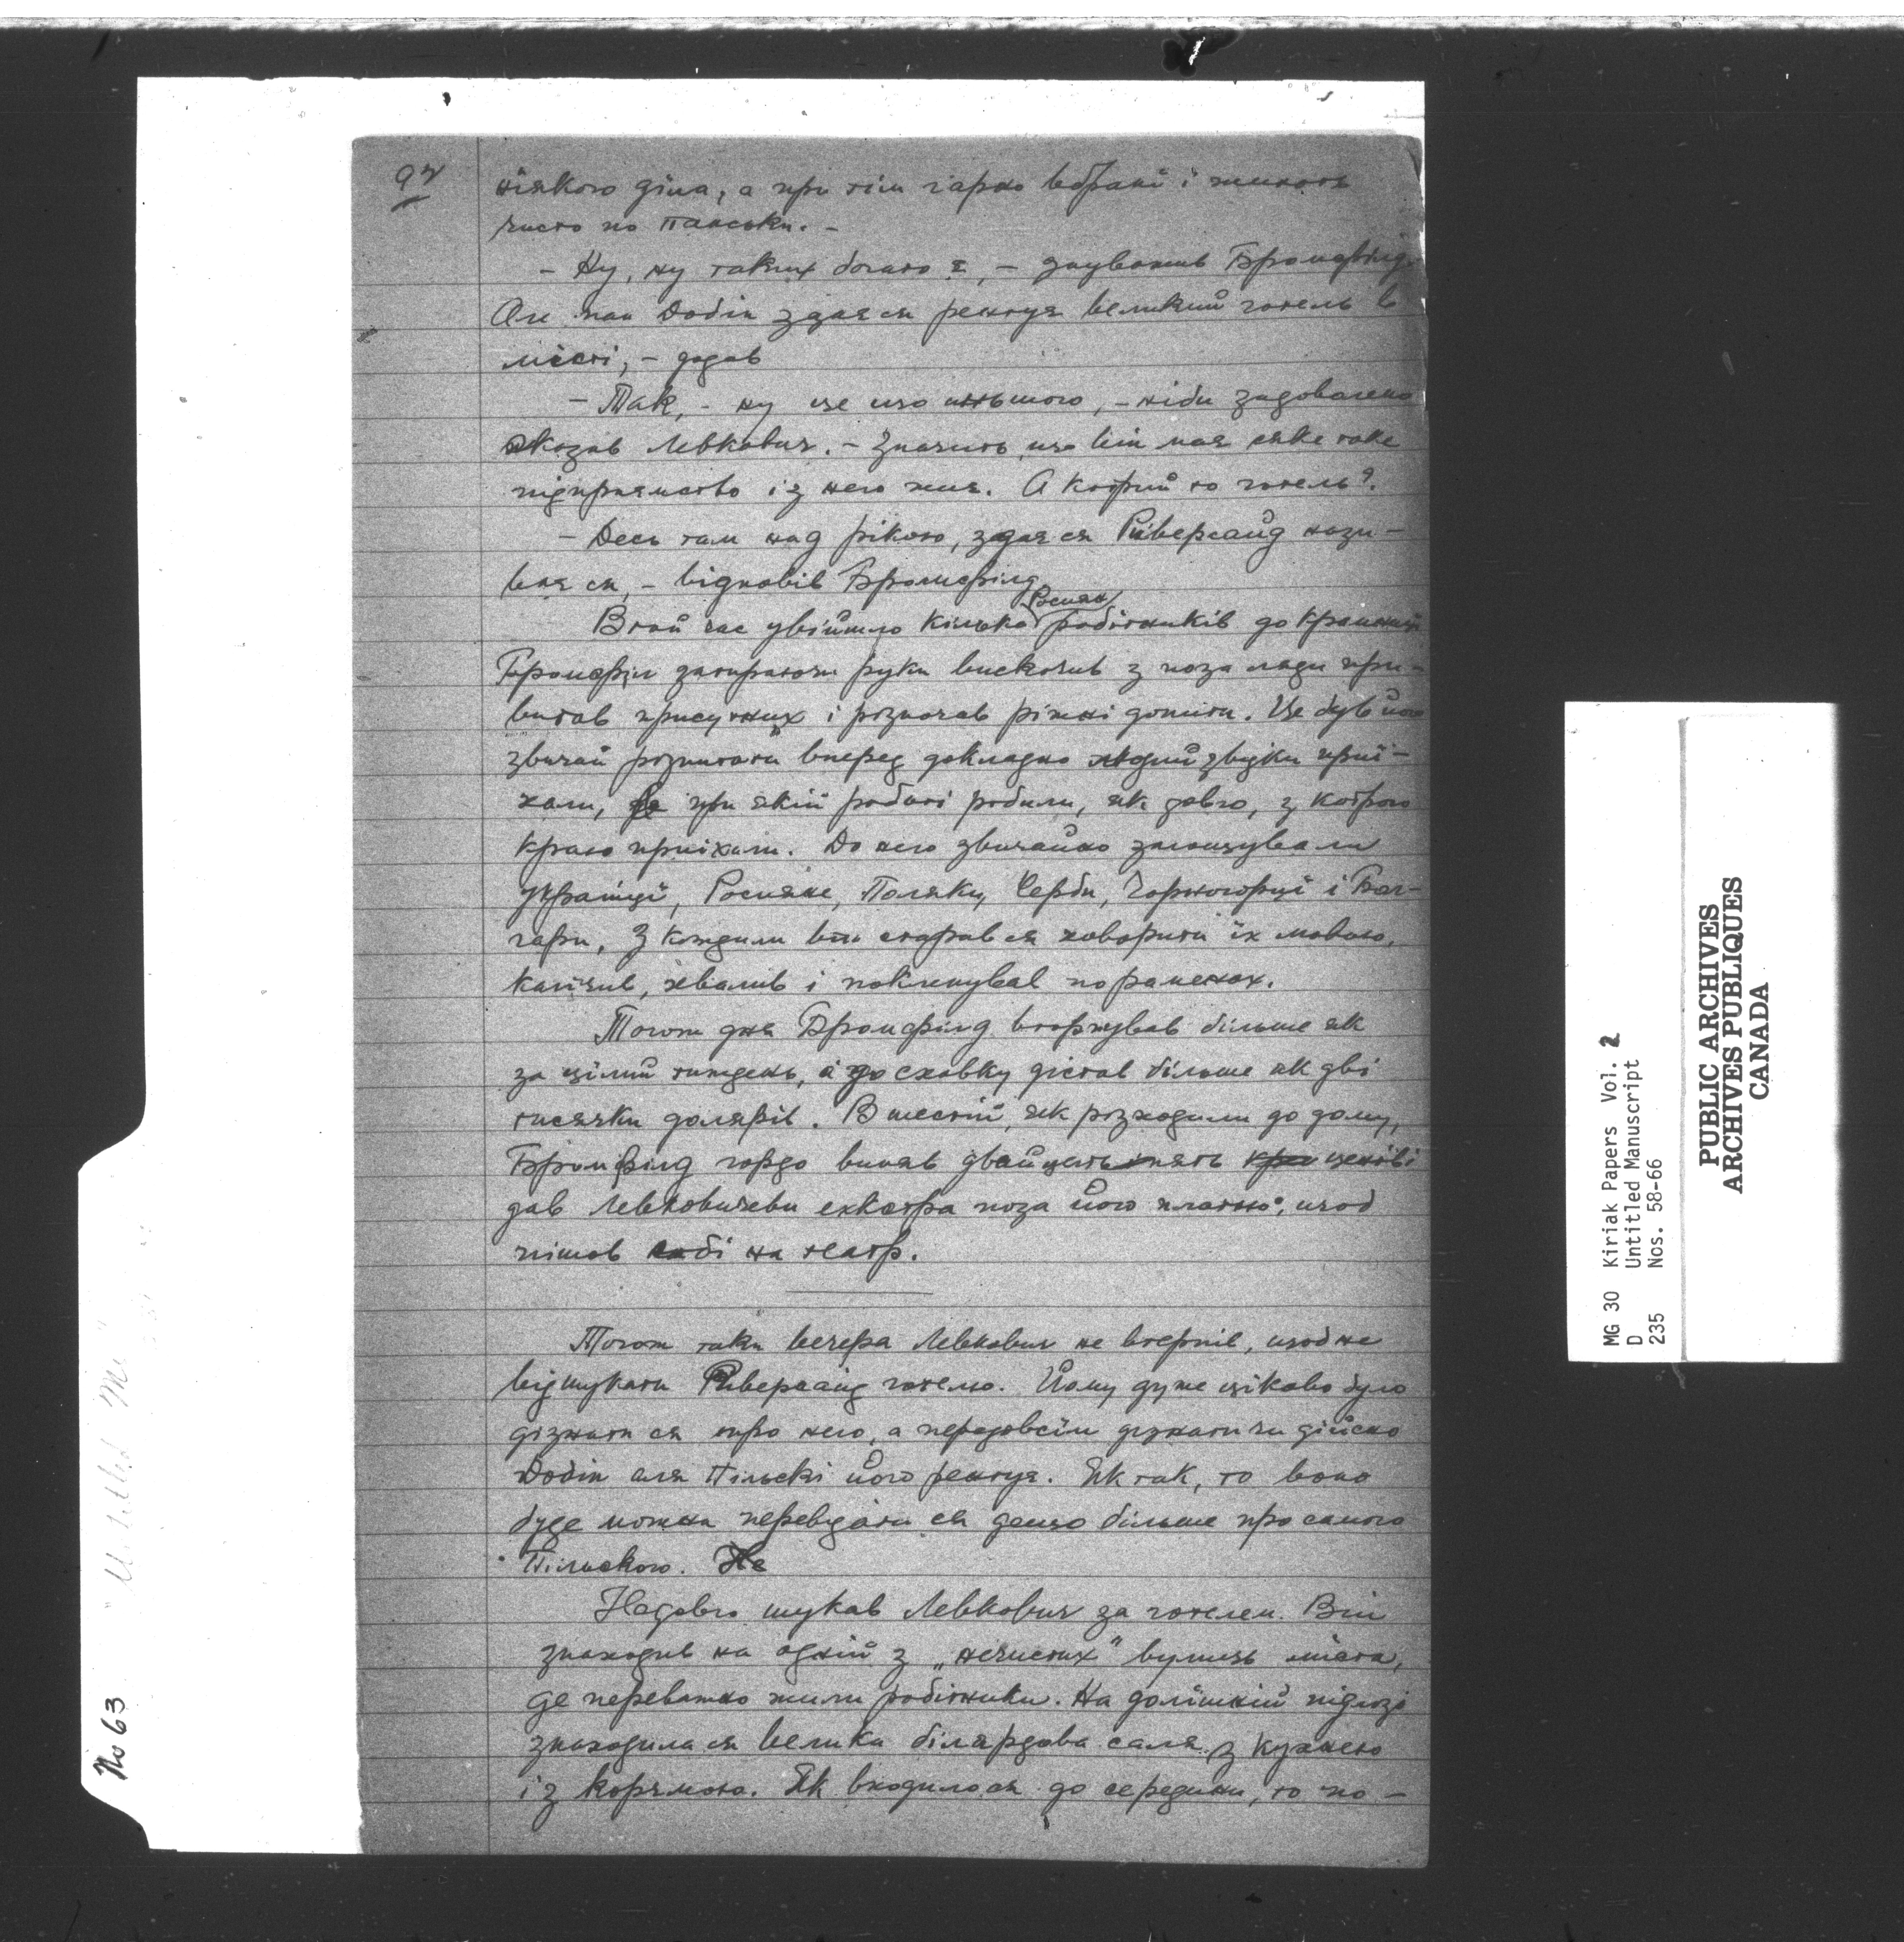 97
ніякого діла, а при тім гарно вбрані і живуть
чисто по панськи. –
– Ну, ну таких богато є, – завважив Бромфілд.
Але пан Добін здає ся рентує великий готель в
місті, – додав
– Так, – ну це що иньшого, – ніби задоволено
сказав Левкович. – Значить, що він має сяке таке
підприємство із него жиє. А котрий то готель?
– Десь там над рікою, здає ся Ріверсайд нази-
ває ся, – відповів Бромфілд.
В той час увійшло кілька Росиян робітників до крамниці
Бромфілд затираючи руки вискочив з поза лади при-
витав присутних і розпочав ріжні допити. Це був його
звичай розпитати вперед докладно людий звідки приї-
хали, при якій роботі робили, як довго, з котрого
краю приїхали. До него звичайно заходжували
Українці, Росияне, Поляки, Серби, Чорногорці і Бол-
гари, З кождим він старав ся говорити їх мовою,
хвалив і поклепував по раменах.
Тогож дня Бромфілд вторжував більше як
за цілий тиждень, а до сховку дістав більше як дві
тисячки долярів. В шестій, як розходили до дому,
Бромфілд гордо виняв двайцять пять центів і
дав Левковичеви екстра поза його платню, щоб
пішов собі на театр.
Тогож таки вечера Левкович не втерпів, щоб не
відшукати Ріверсайд готелю. Йому дуже цікаво було
дізнати ся про него, а передовсім дізнати чи дійсно
Добін аля Пільскі його рентує. Як так, то воно
буде можна перевідати ся дещо більше про самого
Пільского. Не
Недовго шукав Левкович за готелем. Він
знаходив на одній з „нечистих" вулиць міста,
де переважно жили робітники. На долішній підлозі
знаходила ся велика білярдова саля з кухнею
із коршмою. Як входило ся до середини, то по –
No 63
MG 30 Kiriak Papers Vol. 2
D Untitled Manuscript
235 Nos. 58-66
PUBLIC ARCHIVES
ARCHIVES PUBLIQUES
CANADA